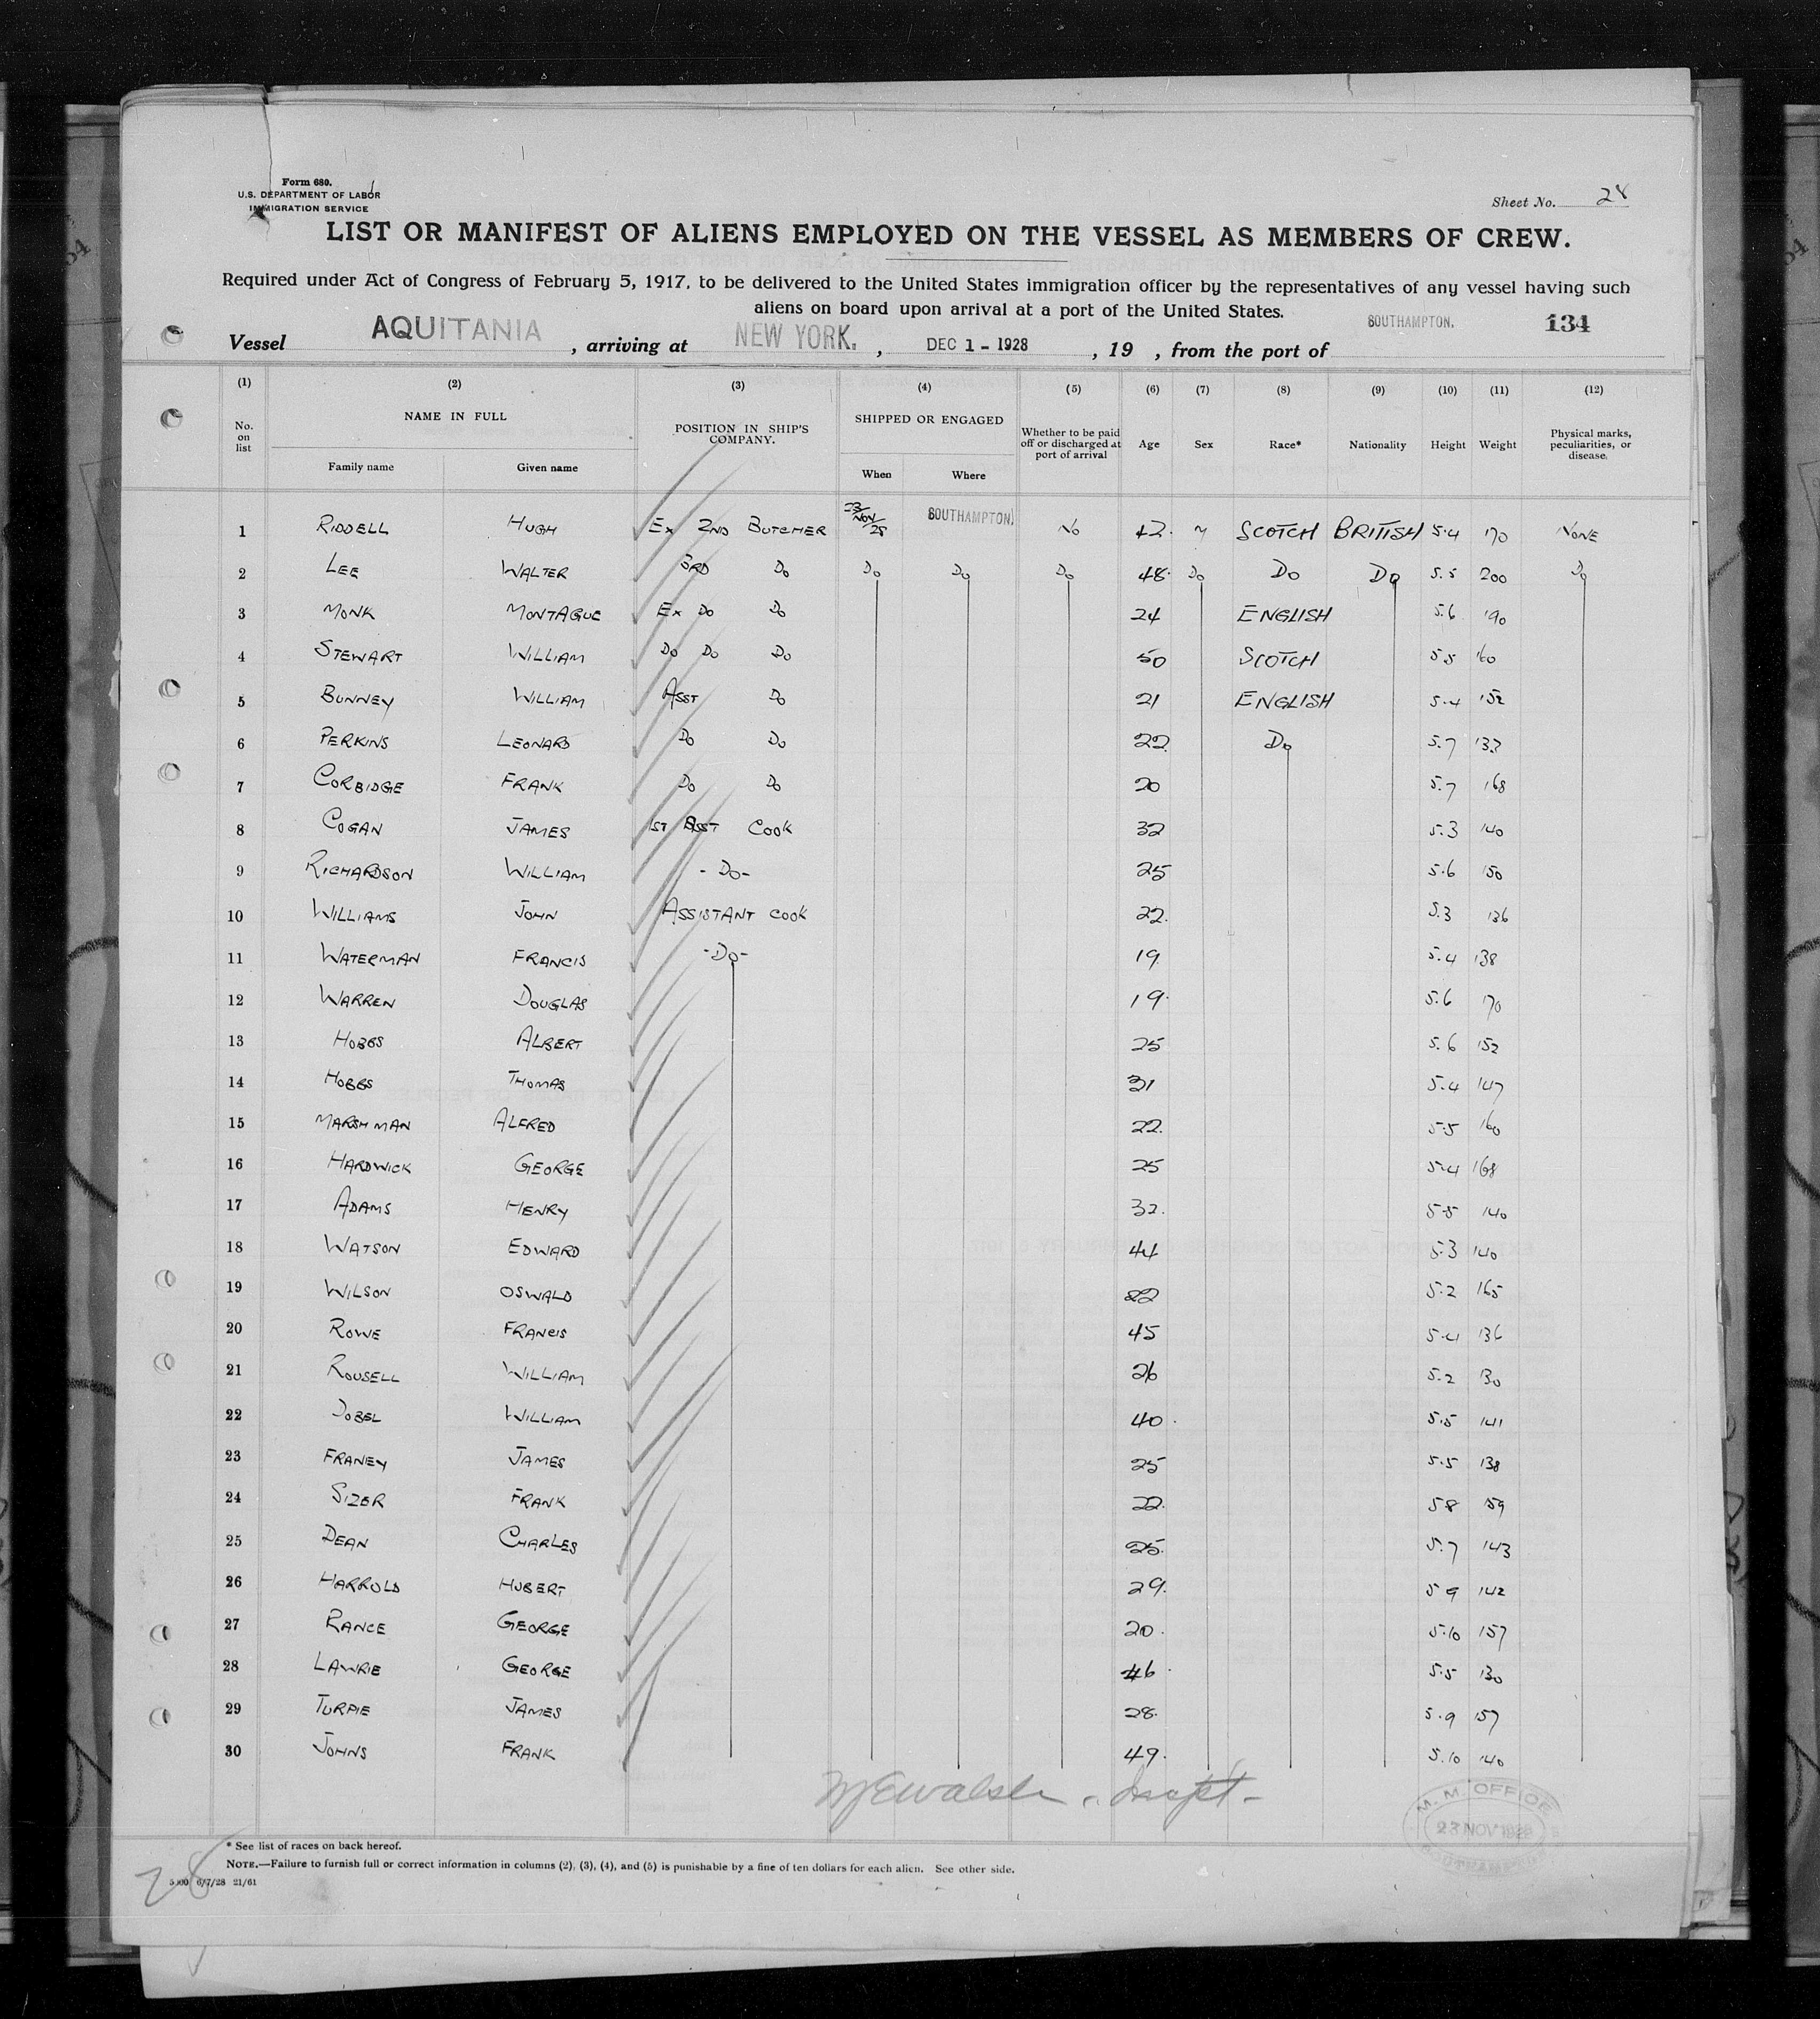 Form 680.
U.S. DEPARTMENT OF LABOR
IMMIGRATION SERVICE
Sheet No. 28
LIST OR MANIFEST OF ALIENS EMPLOYED ON THE VESSEL AS MEMBERS OF CREW.
Required under Act of Congress of February 5, 1917, to be delivered to the United States immigration officer by the representatives of any vessel having such
aliens on board upon arrival at a port of the United States.
134
Vessel AQUITANIA, arriving at NEW YORK., DEC 1 - 1928, 19 , from the port of SOUTHAMPTON.
(1) (2) (3) (4) (5) (6) (7) (8) (9) (10) (11) (12)
No. on list NAME IN FULL Family name Given name POSITION IN SHIP'S COMPANY. SHIPPED OR ENGAGED When Where Whether to be paid off or discharged at port of arrival Age Sex Race* Nationality Height Weight Physical marks, peculiarities, or disease.
1 RIDDELL HUGH Ex 2ND BUTCHER 23/NOV/28 SOUTHAMPTON. No 42. M SCOTCH BRITISH 5.4 170 NONE
2 LEE WALTER 3RD Do Do Do Do 48. Do Do Do 5.5 200 Do
3 MONK MONTAGUE Ex Do Do 24 ENGLISH 5.6 190
4 STEWART WILLIAM Do Do Do 50 SCOTCH 5.5 160
5 BUNNEY WILLIAM ASST Do 21 ENGLISH 5.4 152
6 PERKINS LEONARD Do Do 22. Do 5.7
7 CORBIDGE FRANK Do Do 20 5.7 168
8 COGAN JAMES 1ST ASST COOK 32 5.3 140
9 RICHARDSON WILLIAM - Do - 25 5.6 150
10 WILLIAMS JOHN ASSISTANT COOK 22. 5.3 136
11 WATERMAN FRANCIS - Do - 19. 5.4 138
12 WARREN DOUGLAS 19. 5.6 170
13 HOBBS ALBERT 25 5.6 152
14 HOBBS THOMAS 31 5.4 147
15 MARSHMAN ALFRED 22. 5.5 160
16 HARDWICK GEORGE 25 5.4 168
17 ADAMS HENRY 32. 5.5 140
18 WATSON EDWARD 44 5.3 140
19 WILSON OSWALD 22 5.2 165
20 ROWE FRANCIS 45 5.4 136
21 ROUSELL WILLIAM 26 5.2 130
22 DOBEL WILLIAM 40. 5.5 141
23 FRANEY JAMES 25 5.5 138
24 SIZER FRANK 22. 5 8 159
25 DEAN CHARLES 25. 5.7 143
26 HARROLD HUBERT 29. 5 9 142
27 RANCE GEORGE 20. 5.10 157
28 LAWRIE GEORGE 46. 5.5 130
29 TURPIE JAMES 28. 5.9 157
30 JOHNS FRANK 49. 5.10 140
M. M. OFFICE
23 NOV 1928
SOUTHAMPTON
* See list of races on back hereof.
NOTE.—Failure to furnish full or correct information in columns (2), (3), (4), and (5) is punishable by a fine of ten dollars for each alien. See other side.
5000 6/7/28 21/61
28